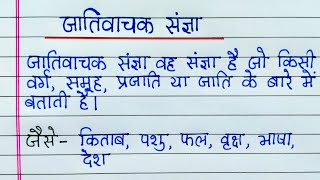 जातिवाचक संज्ञा
जातिवाचक संज्ञा वह संज्ञा है जो किसी
वर्ग, समूह, प्रजाति या जाति के बारे में
बताती है।
जैसे- किताब, पशु, फल, वृक्ष, भाषा,
देश